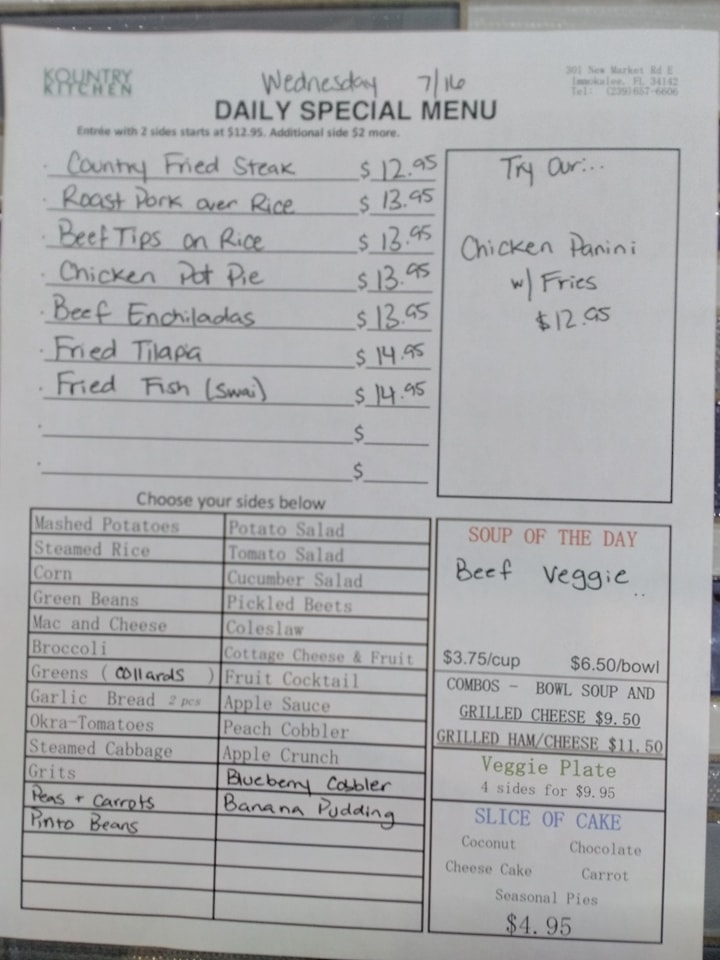 KOUNTRY
KITCHEN
Wednesday 7/16
301 New Market Rd E
Immokalee, FL 34142
Tel: (239)657-6606
DAILY SPECIAL MENU
Entrée with 2 sides starts at $12.95. Additional side $2 more.
Country Fried Steak $ 12.95
Roast Pork over Rice $ 13.95
Beef Tips on Rice $ 13.95
Chicken Pot Pie $ 13.95
Beef Enchiladas $ 13.95
Fried Tilapia $ 14.95
Fried Fish (Swai) $ 14.95
$
$
Try Our:..
Chicken Panini
w/ Fries
$12.95
Choose your sides below
Mashed Potatoes
Steamed Rice
Corn
Green Beans
Mac and Cheese
Broccoli
Greens ( Collards )
Garlic Bread 2 pcs
Okra-Tomatoes
Steamed Cabbage
Grits
Peas + Carrots
Pinto Beans
Potato Salad
Tomato Salad
Cucumber Salad
Pickled Beets
Coleslaw
Cottage Cheese & Fruit
Fruit Cocktail
Apple Sauce
Peach Cobbler
Apple Crunch
Blueberry Cobbler
Banana Pudding
SOUP OF THE DAY
Beef Veggie..
$3.75/cup $6.50/bowl
COMBOS - BOWL SOUP AND
GRILLED CHEESE $9.50
GRILLED HAM/CHEESE $11.50
Veggie Plate
4 sides for $9.95
SLICE OF CAKE
Coconut Chocolate
Cheese Cake Carrot
Seasonal Pies
$4.95